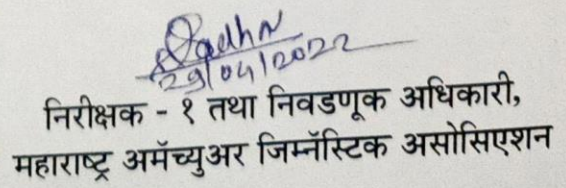 29/04/2022
निरीक्षक - १ तथा निवडणूक अधिकारी,
महाराष्ट्र अॅमॅच्युअर जिम्नॅस्टिक असोसिएशन